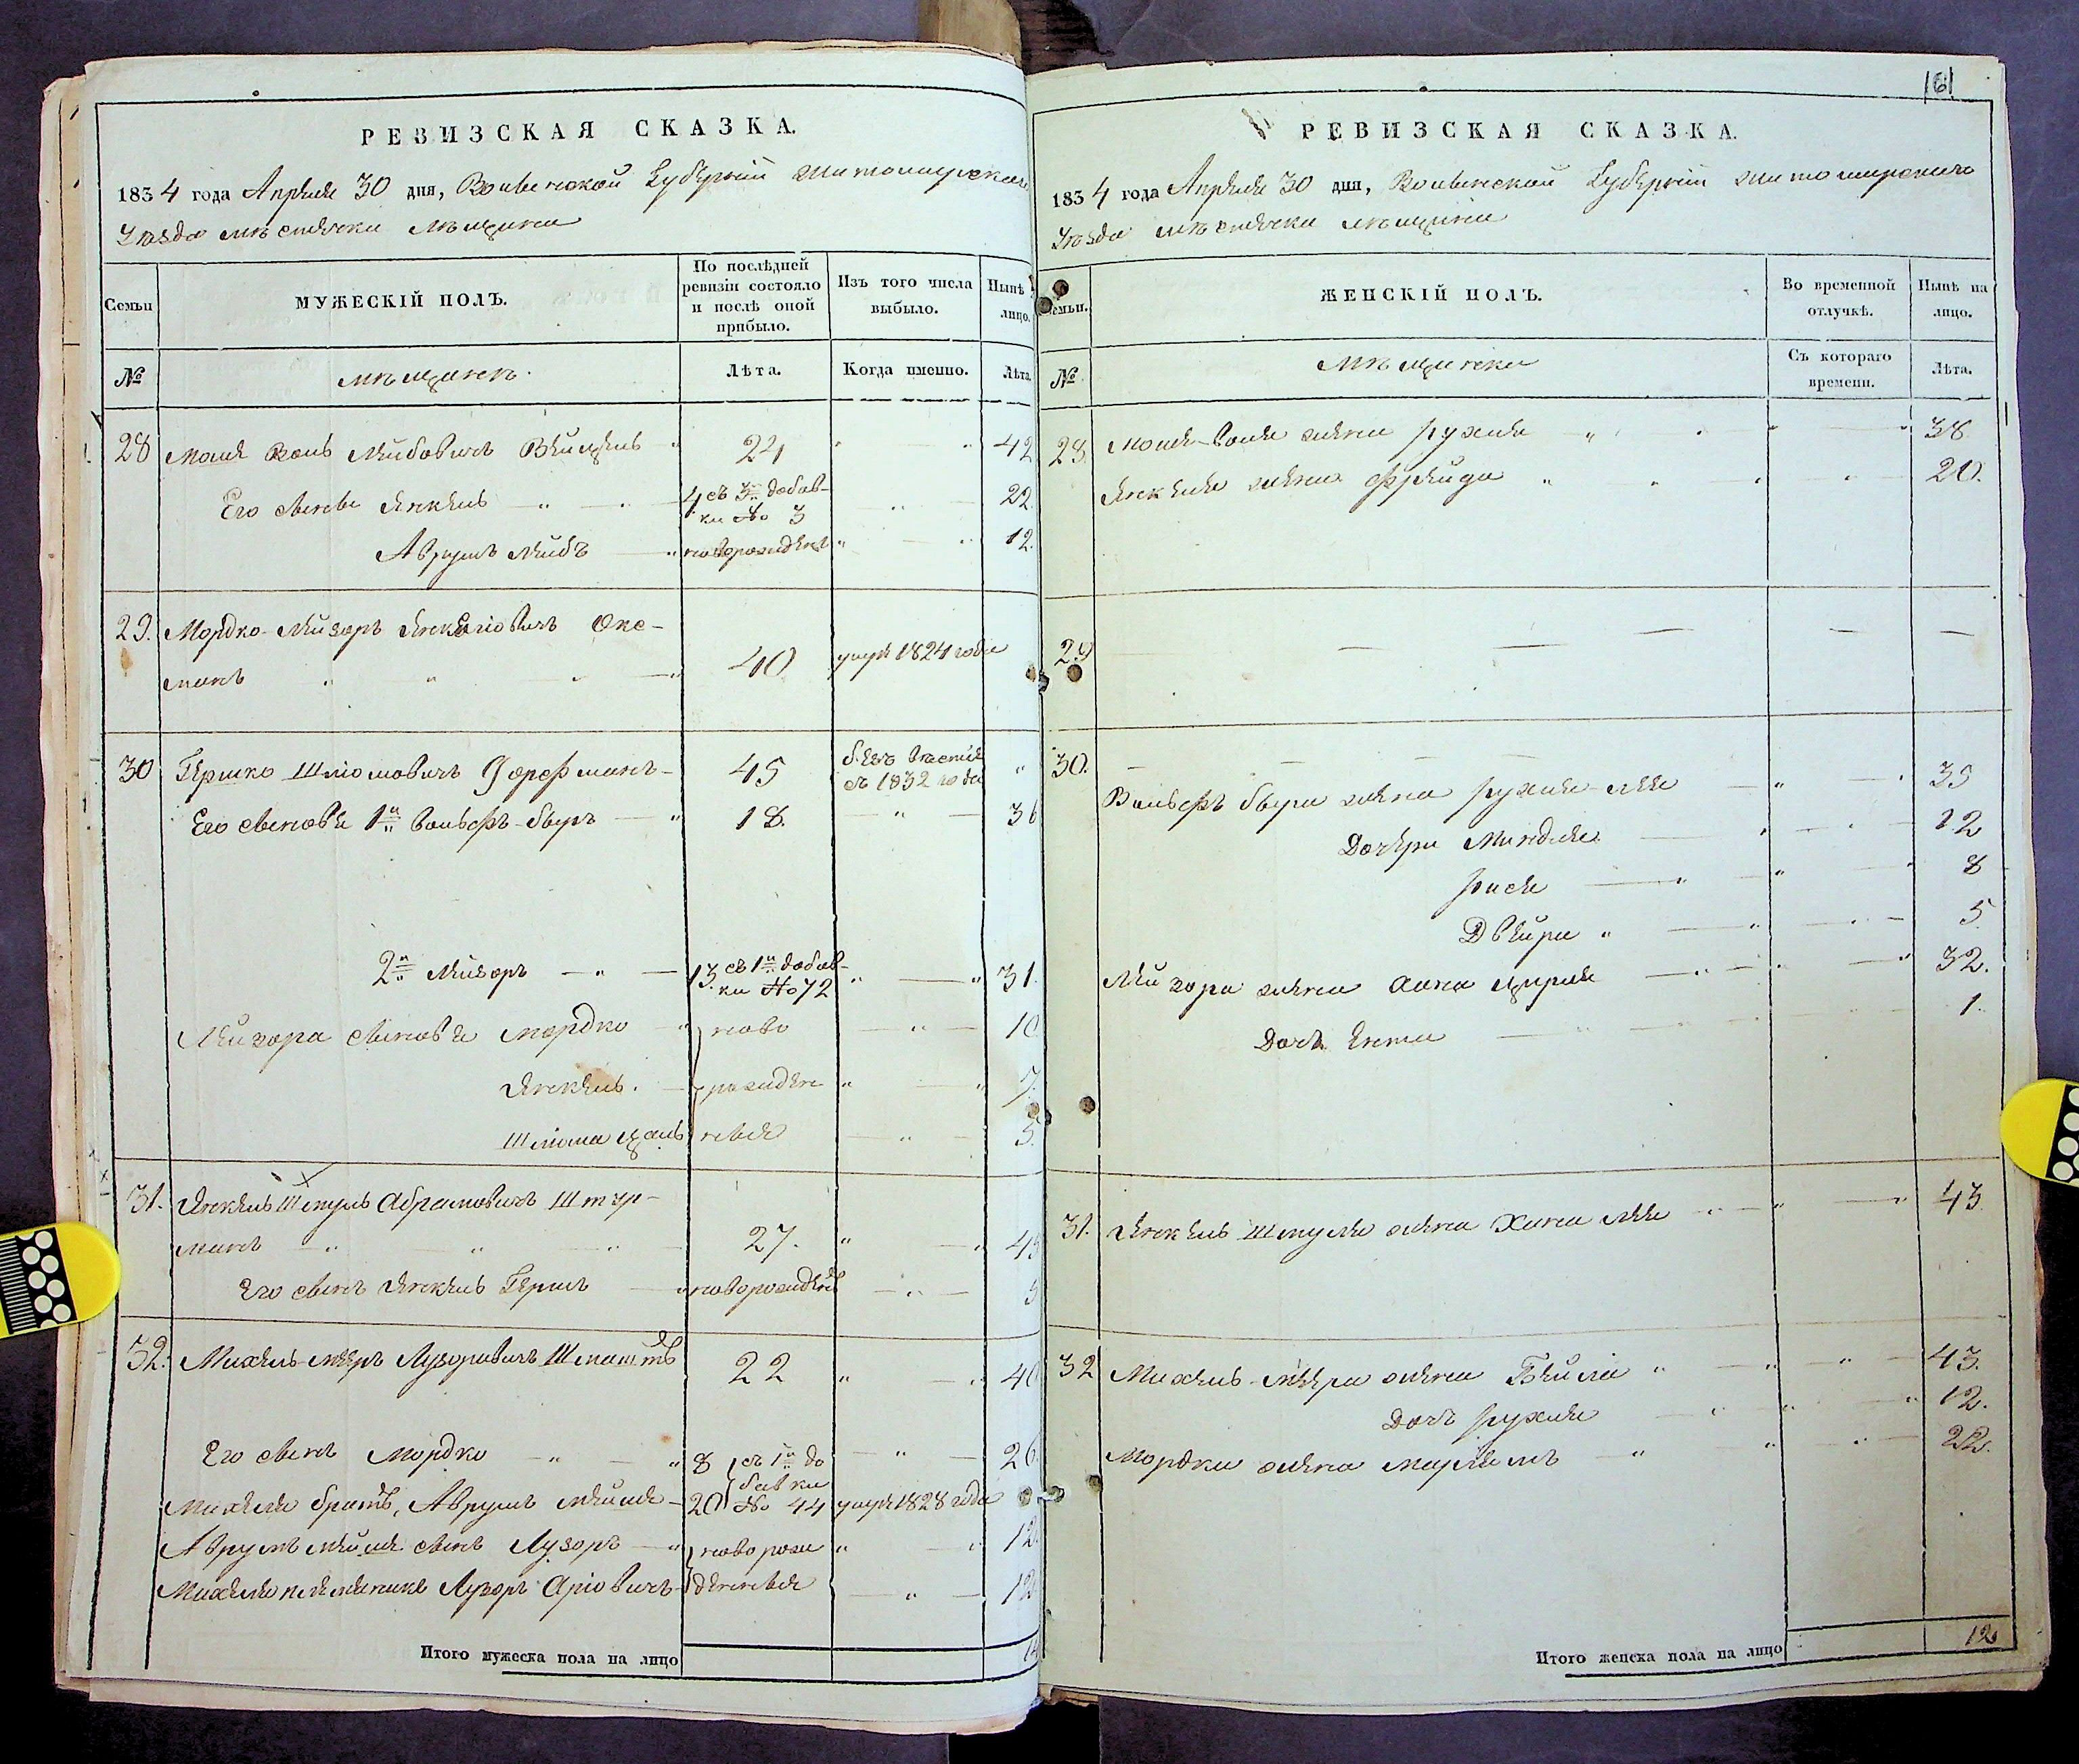 РЕВИЗСКАЯ СКАЗКА.
1834 года Апреля 30 дня, Волынской Губернии Житомирскаго
Уезда местечка
Семьи
МУЖЕСКІЙ ПОЛЪ.
По послѣдней
ревизіи состояло
и послѣ оной
прибыло.
Изъ того числа
выбыло.
Нынѣ
лицо.
№
мещанъ
Лѣта.
Когда именно.
Лѣта.
28 Мошко Волъ Лейбовичъ 24 42
Его сынове Янкель 4 съ 3й добав- 22
ки № 3
Аврумъ Лейбъ новорожденъ 12.
29. Мордко Лейзоръ Янкелiовичъ Окс-
манъ 40 умре 1824 года
30 Гершко Шлiомовичъ Дорфманъ 45 безъ вѣстей
съ 1832 года
Его сыновья 1й Вольфъ-Бэръ 18. 36
2й Лейзоръ 13. съ 1й добав- 31.
ки № 72
Лейзора сыновья Мордко ново 10
Янкель. рожден 7.
Шлiома ные 5.
31. Янкель Шмуль Абрамовичъ Штэр-
манъ 27. 45
Его сынъ Янкель Гершъ новорожденъ 5
32. Михель-Мееръ Лузоровичъ 22 40
Его сынъ Мордко 8 съ 1й до 26.
Михеля братъ, Аврумъ Мейше 20 бавки
№ 44 умре 1828 года
Аврумъ Мейше сынъ Лузоръ новорож 12.
Михеля племяникъ Лузоръ Арiовичъ денные 12
Итого мужеска пола на лицо 14
161
РЕВИЗСКАЯ СКАЗКА.
1834 года Апреля 30 дня, Волынской Губернии Житомирскаго
Уезда местечка
Семьи.
ЖЕНСКІЙ ПОЛЪ.
Во временной
отлучкѣ.
Нынѣ на
лицо.
№
Мещанки
Съ котораго
времени.
Лѣта.
28. Мошка-Воля жена Рухля 38
Янкеля жена Фрейда 20.
29
30.
Вольфъ Бэра жена Рухля-Лея 35
Дочери Миндля 12
Рися 8
Двейра 5.
Лейзора жена Хана Цирля 32.
Дочь Ента 1.
31. Янкель Шмуля жена Хана Лея 43
32 Михель-Меера жена Бейла 43.
Дочъ Рухля 12.
Мордка жена Марiямъ 22.
Итого женска пола на лицо 12